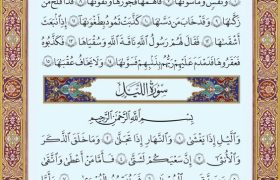 وَنَفْسٍ وَمَا سَوَّىٰهَا ۝٧ فَأَلْهَمَهَا فُجُورَهَا وَتَقْوَىٰهَا ۝٨ قَدْ أَفْلَحَ مَن
زَكَّىٰهَا ۝٩ وَقَدْ خَابَ مَن دَسَّىٰهَا ۝١٠ كَذَّبَتْ ثَمُودُ بِطَغْوَىٰهَا ۝١١ إِذِ ٱنۢبَعَثَ
أَشْقَىٰهَا ۝١٢ فَقَالَ لَهُمْ رَسُولُ ٱللَّهِ نَاقَةَ ٱللَّهِ وَسُقْيَٰهَا ۝١٣ فَكَذَّبُوهُ
فَعَقَرُوهَا فَدَمْدَمَ عَلَيْهِمْ رَبُّهُم بِذَنۢبِهِمْ فَسَوَّىٰهَا ۝١٤ وَلَا يَخَافُ عُقْبَٰهَا ۝١٥
سُورَةُ اللَّيْلِ
بِسْمِ ٱللَّهِ ٱلرَّحْمَٰنِ ٱلرَّحِيمِ
وَٱلَّيْلِ إِذَا يَغْشَىٰ ۝١ وَٱلنَّهَارِ إِذَا تَجَلَّىٰ ۝٢ وَمَا خَلَقَ ٱلذَّكَرَ
وَٱلْأُنثَىٰٓ ۝٣ إِنَّ سَعْيَكُمْ لَشَتَّىٰ ۝٤ فَأَمَّا مَنْ أَعْطَىٰ وَٱتَّقَىٰ